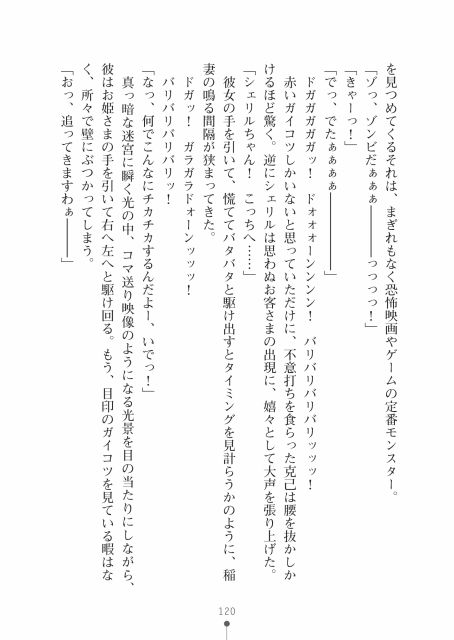 を見つめてくるそれは、まぎれもなく恐怖映画やゲームの定番モンスター。
「ゾっ、ゾンビだぁぁぁ――――っっっっ！」
「きゃーっ！」
「でっ、でたぁぁぁぁ――――」
ドガガガガガッ！　ドォォォーンンンン！　バリバリバリバリッッッ！
赤いガイコツしかいないと思っていただけに、不意打ちを食らった克己は腰を抜かしか
けるほど驚く。逆にシェリルは思わぬお客さまの出現に、嬉々として大声を張り上げた。
「シェリルちゃん！　こっちへ……」
彼女の手を引いて、慌ててバタバタと駆け出すとタイミングを見計らうかのように、稲
妻の鳴る間隔が狭まってきた。
ドガッ！　ガラガラドォーンッッッ！
バリバリバリバリッ！
「なっ、何でこんなにチカチカするんだよー、いでっ！」
真っ暗な迷宮に瞬く光の中、コマ送り映像のようになる光景を目の当たりにしながら、
彼はお姫さまの手を引いて右へ左へと駆け回る。もう、目印のガイコツを見ている暇はな
く、所々で壁にぶつかってしまう。
「おっ、追ってきますわぁ――――」
120